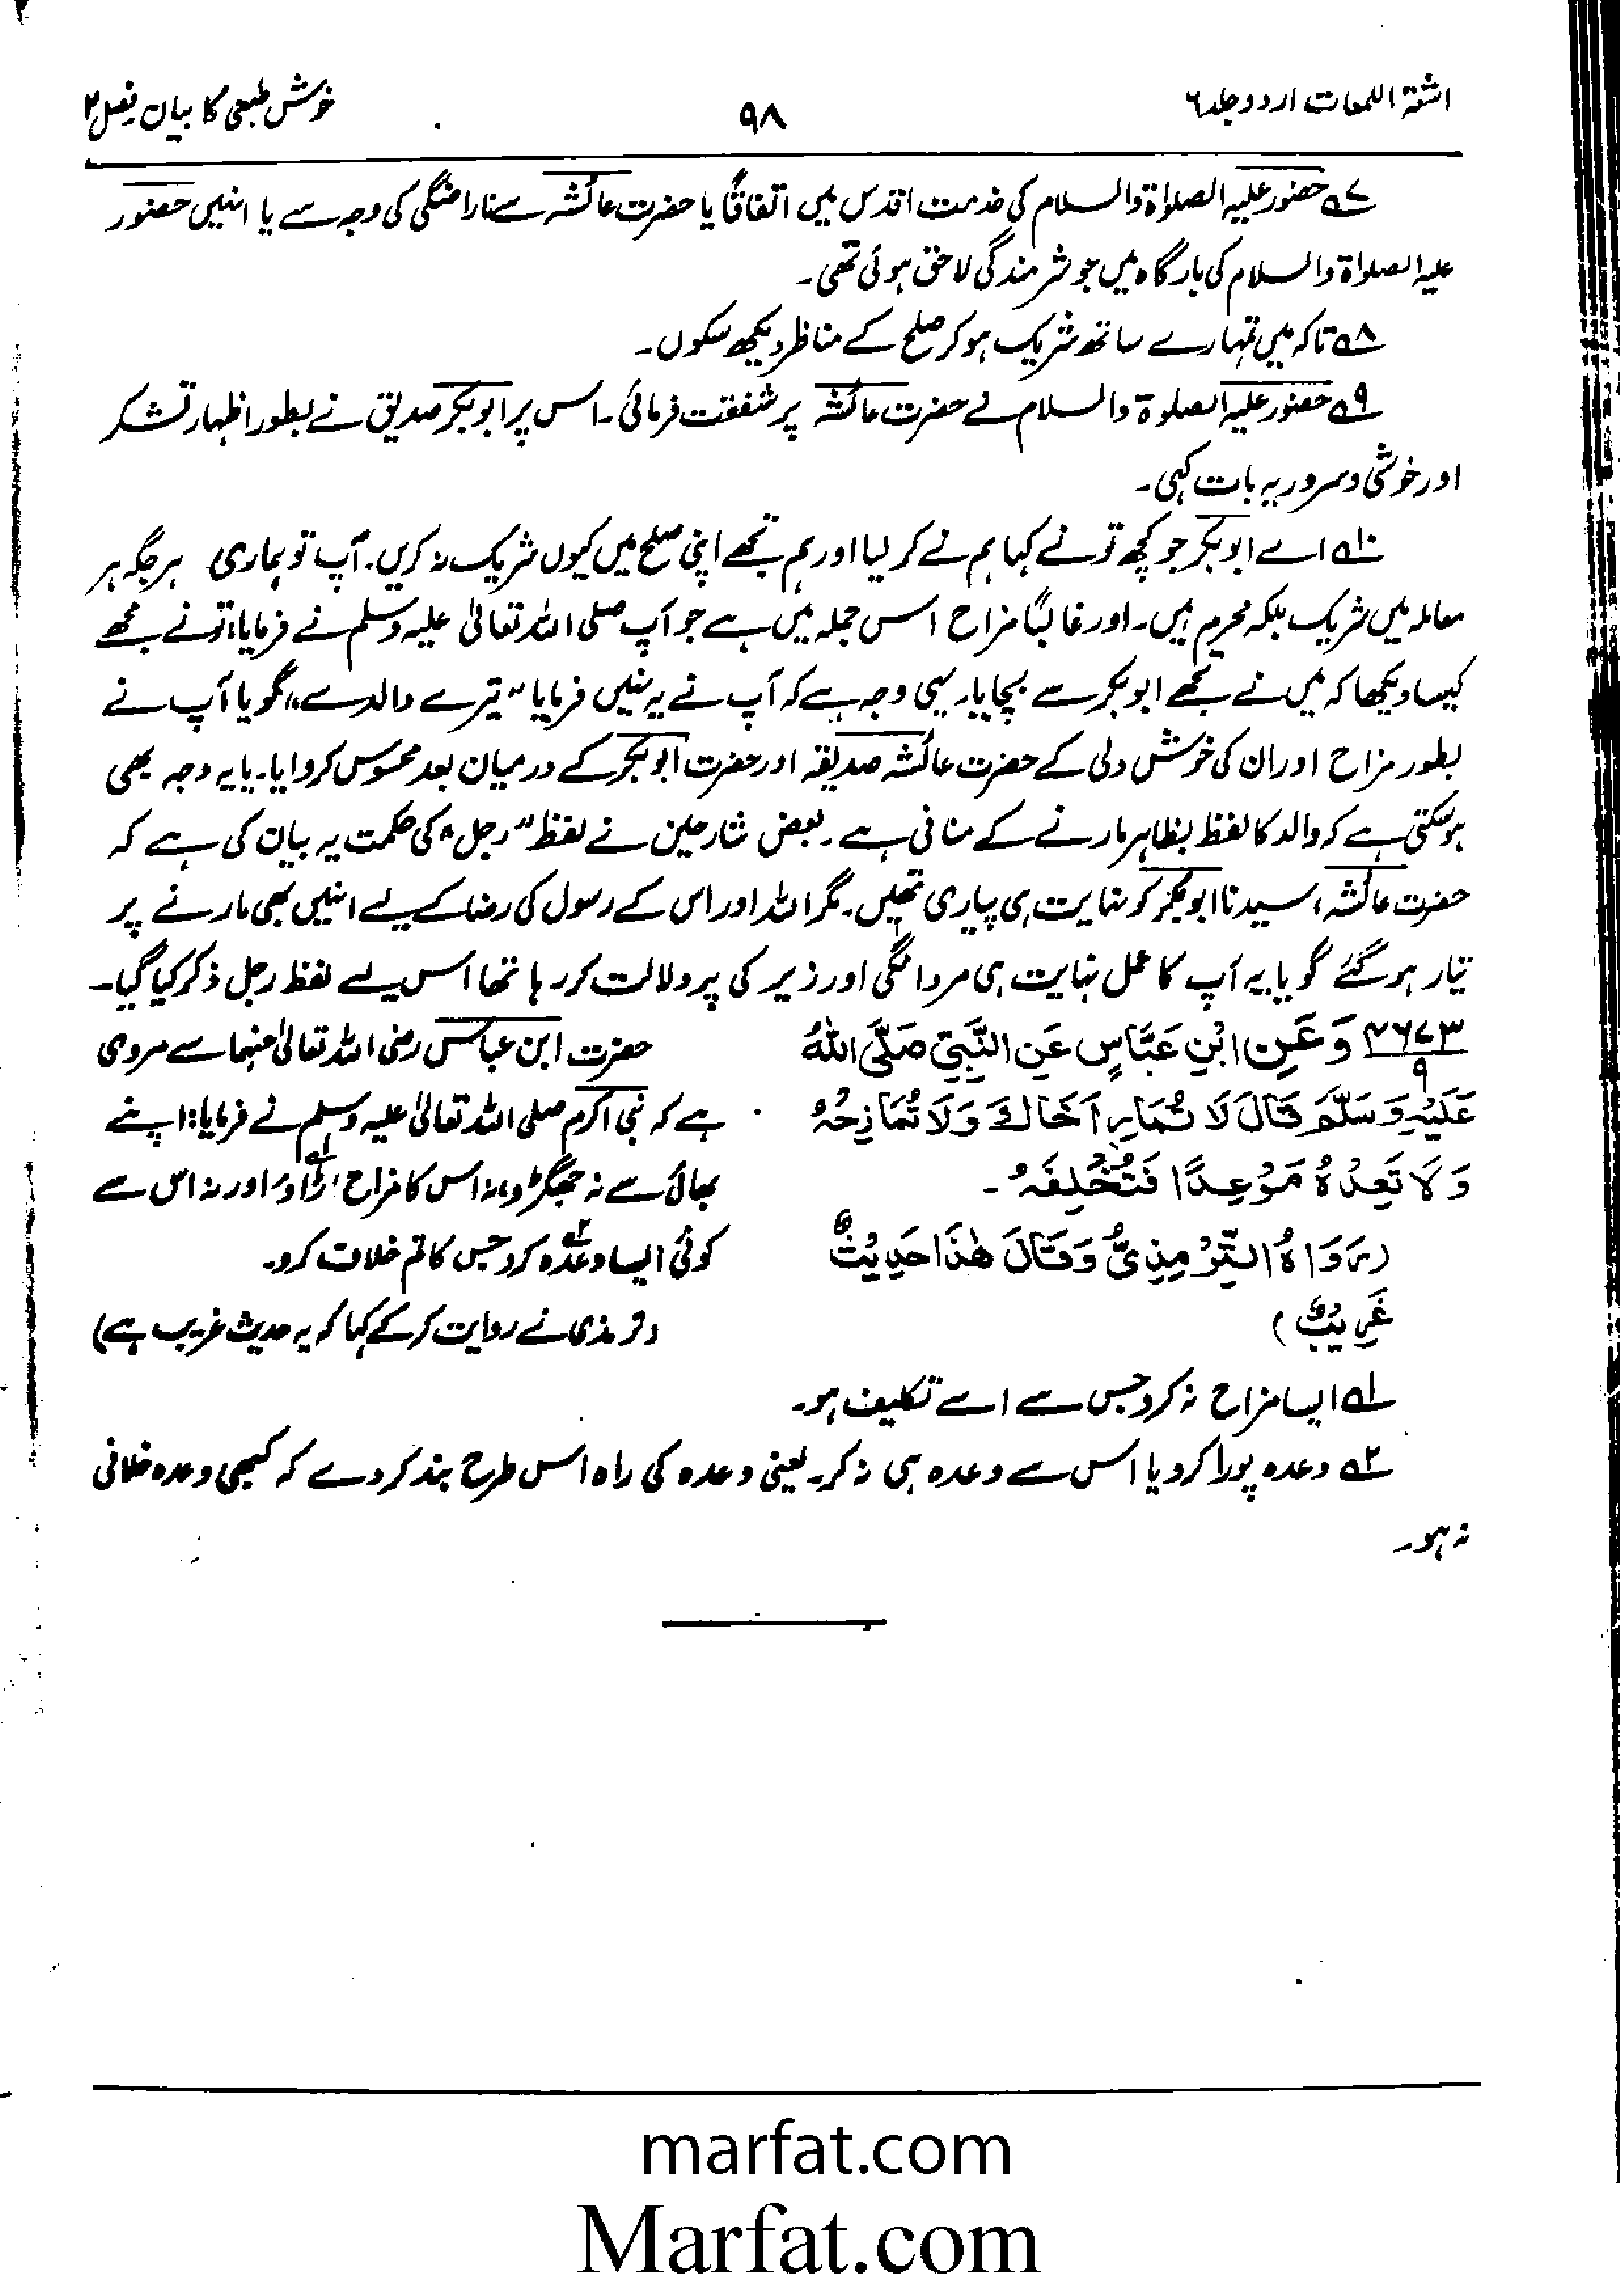 اشعۃ اللمعات اردو جلد ۶
۹۸
خوش طبعی کا بیان فصل ۲
۷؎ حضور علیہ الصلوٰۃ والسلام کی خدمت اقدس میں اتفاقًا یا حضرت عائشہ سے ناراضگی کی وجہ سے یا انہیں حضور
علیہ الصلواۃ والسلام کی بارگاہ میں جو شرمندگی لاحق ہوئی تھی۔
۸؎ تاکہ میں تمہارے ساتھ شریک ہو کر صلح کے مناظر دیکھ سکوں۔
۹؎ حضور علیہ الصلوۃ والسلام نے حضرت عائشہ پر شفقت فرمائی۔ اس پر ابوبکر صدیق نے بطور اظہار تشکر
اور خوشی و سرور یہ بات کہی۔
۱۰؎ اے ابوبکر جو کچھ تو نے کہا ہم نے کر لیا اور ہم تجھے اپنی صلح میں کیوں شریک نہ کریں۔ آپ تو ہماری ہر جگہ ہر
معاملہ میں شریک بلکہ محرم ہیں۔ اور غالبًا مزاح اس جملہ میں ہے جو آپ صلی اللہ تعالیٰ علیہ وسلم نے فرمایا: تو نے مجھے
کیسا دیکھا کہ میں نے تجھے ابوبکر سے بچایا۔ یہی وجہ ہے کہ آپ نے یہ نہیں فرمایا ”تیرے والد سے“ گویا آپ نے
بطور مزاح اور ان کی خوش دلی کے حضرت عائشہ صدیقہ اور حضرت ابوبکر کے درمیان بعد محسوس کروایا۔ یا یہ وجہ بھی
ہو سکتی ہے کہ والد کا لفظ بظاہر مارنے کے منافی ہے۔ بعض شارحین نے لفظ ”رجل“ کی حکمت یہ بیان کی ہے کہ
حضرت عائشہ، سیدنا ابوبکر کو نہایت ہی پیاری تھیں۔ مگر اللہ اور اس کے رسول کی رضا کے لیے انہیں بھی مارنے پر
تیار ہو گئے گویا یہ آپ کا عمل نہایت ہی مردانگی اور زیر کی پر دلالت کر رہا تھا اس لیے لفظ رجل ذکر کیا گیا۔
۴۶۷۳/۹ وَعَنِ ابْنِ عَبَّاسٍ عَنِ النَّبِيِّ صَلَّی اللّٰهُ
عَلَيْهِ وَسَلَّمَ قَالَ لَا تُمَارِ اَخَاكَ وَلَا تُمَازِحْهُ
وَلَا تَعِدْهُ مَوْعِدًا فَتُخْلِفَهُ۔
(رَوَاهُ التِّرْمِذِيُّ وَقَالَ هٰذَا حَدِيْثٌ
غَرِيْبٌ)
حضرت ابن عباس رضی اللہ تعالیٰ عنہما سے مروی
ہے کہ نبی اکرم صلی اللہ تعالیٰ علیہ وسلم نے فرمایا: اپنے
بھائی سے نہ جھگڑو، نہ اس کا مزاح اڑاؤ۱؎ اور نہ اس سے
کوئی ایسا وعدہ۲؎ کرو جس کا تم خلاف کرو۔
(ترمذی نے روایت کر کے کہا کہ یہ حدیث غریب ہے)
۱؎ ایسا مزاح نہ کرو جس سے اسے تکلیف ہو۔
۲؎ وعدہ پورا کرو یا اس سے وعدہ ہی نہ کر۔ یعنی وعدہ کی راہ اس طرح بند کر دے کہ کبھی وعدہ خلافی
نہ ہو۔
marfat.com
Marfat.com